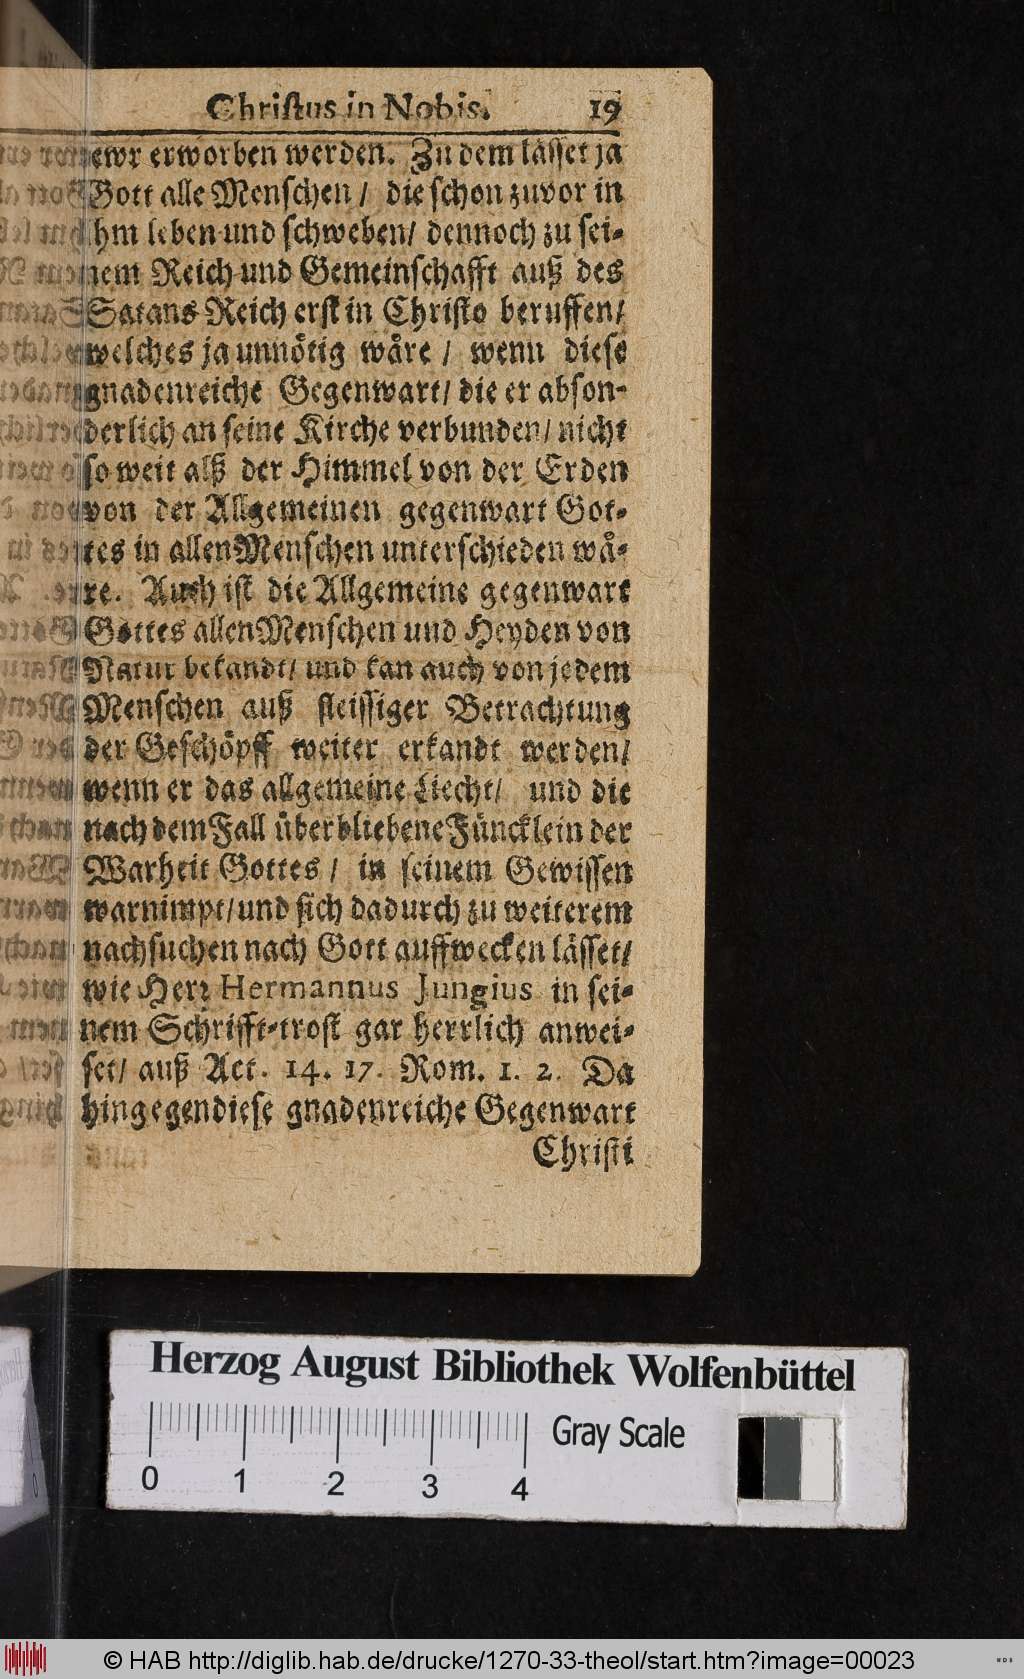 Christus in Nobis. 19
ewr erworben werden. Zu dem lässet ja
Gott alle Menschen / die schon zuvor in
hm leben und schweben / dennoch zu sei-
nem Reich und Gemeinschafft auß des
Satans Reich erst in Christo beruffen /
welches ja unnötig wåre / wenn diese
gnadenreiche Gegenwart / die er abson-
derlich an seine Kirche verbunden / nicht
so weit alß der Himmel von der Erden
von der Allgemeinen gegenwart Got-
tes in allen Menschen unterschieden wå-
re. Auch ist die Allgemeine gegenwart
Gottes allen Menschen und Heyden von
Natur bekandt / und kan auch von jedem
Menschen auß fleissiger Betrachtung
der Geschöpff weiter erkandt werden /
wenn er das allgemeine Liecht / und die
nach dem Fall überbliebene Füncklein der
Warheit Gottes / in seinem Gewissen
warnimpt / und sich dadurch zu weiterem
nachsuchen nach Gott auffwecken lässet /
wie Herr Hermannus Jungius in sei-
nem Schrifft-trost gar herrlich anwei-
set / auß Act. 14. 17. Rom. 1. 2. Da
hingegen diese gnadenreiche Gegenwart
Christi
Herzog August Bibliothek Wolfenbüttel
0 1 2 3 4 Gray Scale
© HAB http://diglib.hab.de/drucke/1270-33-theol/start.htm?image=00023